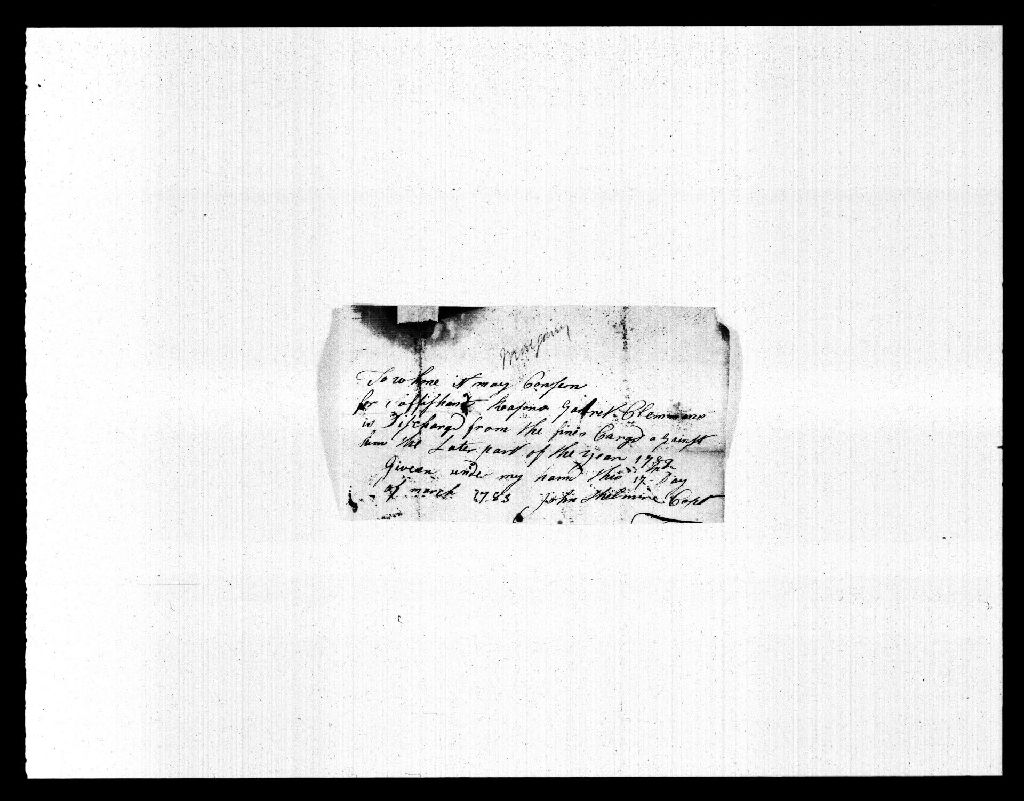 To whome it may Consern
for Suffishant Reasons Gabrel Clemmans
is Discharg'd from the fines Cargd against
him the Later part of the year 1782
Givean under my hand this 17 Day
of march 1783 John Capt